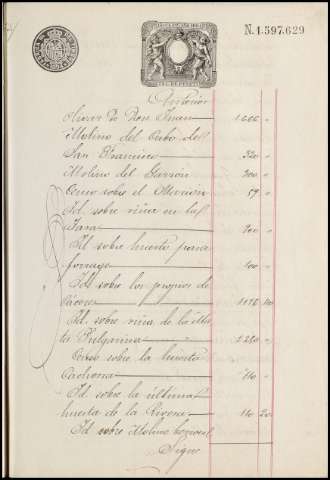 N. 1.597.629
Anterior
Olivar Dº Don Juan 1606 "
Molino del Cubo de
San Francisco 320 "
Molino del 300 "
Censo sobre el 59 "
Id sobre viña en la
Jara 200 "
Id sobre huerto para
forrage 100 "
Id sobre los propios de
Cáceres
Id. sobre viña de la
ta Pulgarina
Censo sobre la huerta
Cachona 110 "
Id sobre la última
huerta de la Rivera 110 20
Id sobre Molino
Sigue